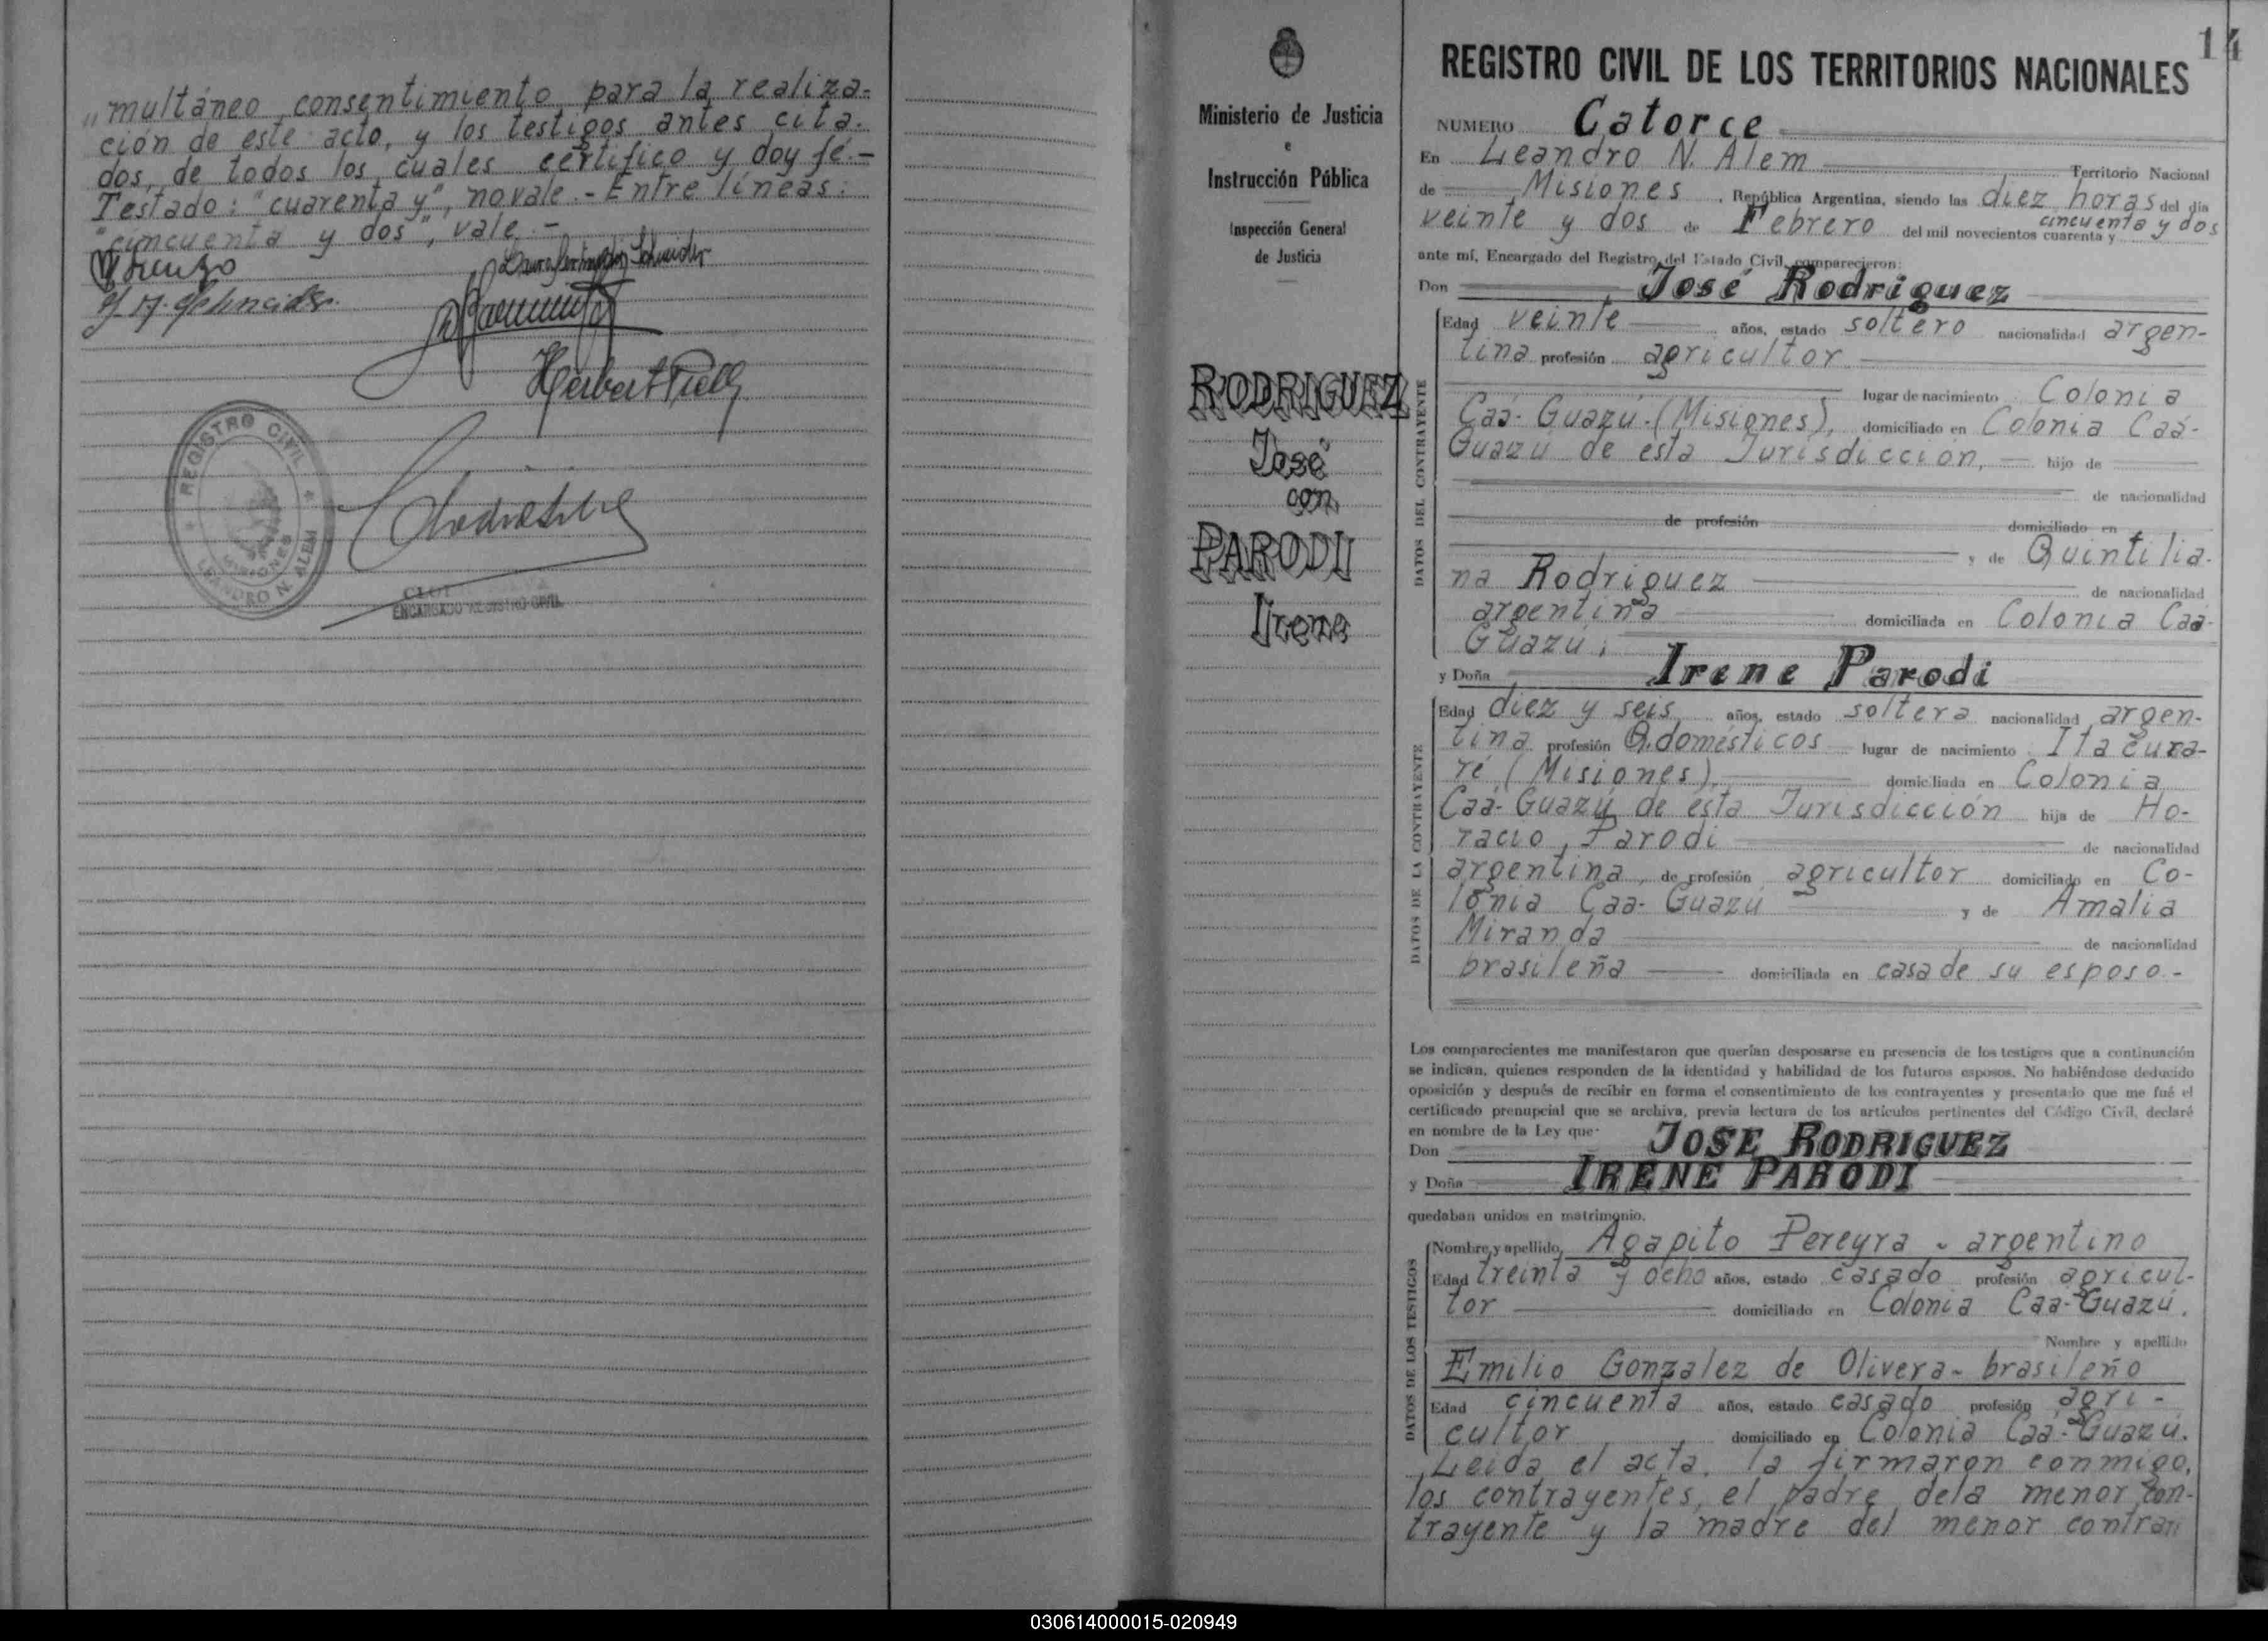 "multáneo consentimiento para la realiza-
ción de este acto, y los testigos antes cita-
dos, de todos los cuales certifico y doy fé.-
Testado: "cuarenta y", no vale.- Entre líneas:
"cincuenta y dos", vale.-
Herbert
REGISTRO CIVIL
MISIONES
LEANDRO N. ALEM
ENCARGADO REGISTRO CIVIL
14
Ministerio de Justicia
e
Instrucción Pública
Inspección General
de Justicia
RODRIGUEZ
José
con
PARODI
Irene
REGISTRO CIVIL DE LOS TERRITORIOS NACIONALES
NUMERO Catorce
En Leandro N. Alem Territorio Nacional
de Misiones, República Argentina, siendo las diez horas del día
veinte y dos de Febrero del mil novecientos cuarenta y cincuenta y dos
ante mí, Encargado del Registro del Estado Civil, comparecieron:
Don José Rodriguez
DATOS DEL CONTRAYENTE
Edad veinte años, estado soltero nacionalidad argen-
tina profesión agricultor
lugar de nacimiento Colonia
Caá-Guazú-(Misiones), domiciliado en Colonia Caá-
Guazú de esta Jurisdicción, hijo de
de nacionalidad
de profesión domiciliado en
y de Quintilia-
na Rodriguez de nacionalidad
argentina domiciliada en Colonia Caá-
Guazú,
y Doña Irene Parodi
DATOS DE LA CONTRAYENTE
Edad diez y seis, años, estado soltera nacionalidad argen-
tina profesión Q. domésticos lugar de nacimiento Itacura-
ré (Misiones) domiciliada en Colonia
Caá-Guazú de ésta Jurisdicción hija de Ho-
racio Parodi de nacionalidad
argentina, de profesión agricultor domiciliado en Co-
lonia Caa-Guazú y de Amalia
Miranda de nacionalidad
brasileña domiciliada en casa de su esposo.-
Los comparecientes me manifestaron que querían desposarse en presencia de los testigos que a continuación
se indican, quienes responden de la identidad y habilidad de los futuros esposos. No habiéndose deducido
oposición y después de recibir en forma el consentimiento de los contrayentes y presentado que me fué el
certificado prenupcial que se archiva, previa lectura de los artículos pertinentes del Código Civil, declaré
en nombre de la Ley que:
Don JOSE RODRIGUEZ
y Doña IRENE PARODI
quedaban unidos en matrimonio.
DATOS DE LOS TESTIGOS
Nombre y apellido Agapito Pereyra - argentino
Edad treinta y ocho años, estado casado profesión agricul-
tor domiciliado en Colonia Caá-Guazú.
Nombre y apellido
Emilio Gonzalez de Olivera- brasileño
Edad cincuenta años, estado casado profesión agri-
cultor domiciliado en Colonia Caá-Guazú.
Leida el acta, la firmaron conmigo,
los contrayentes, el padre dela menor con-
trayente y la madre del menor contra
030614000015-020949